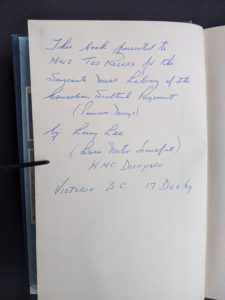 This book presented to
MWO Tod Rogers for the
Sergeants Mess Library of the
Canadian Scottish Regiment
(Princess Mary's)
by Larry Lee
(Base Motor Transport)
HMC Dockyard
Victoria BC 17 Dec 69